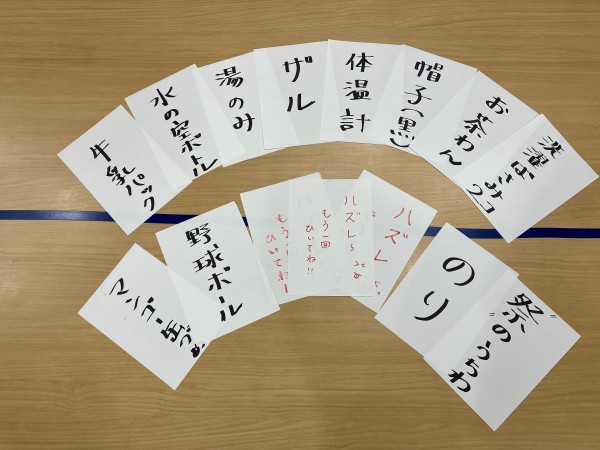 牛乳パック
水の空ボトル
湯のみ
ザル
体温計
帽子(黒)
お茶わん
洗濯ばさみ2コ
マンゴー缶づめ
野球ボール
もう一回
ひいてね!!
ハズレ
ハズレ
のり
"祭"のうちわ